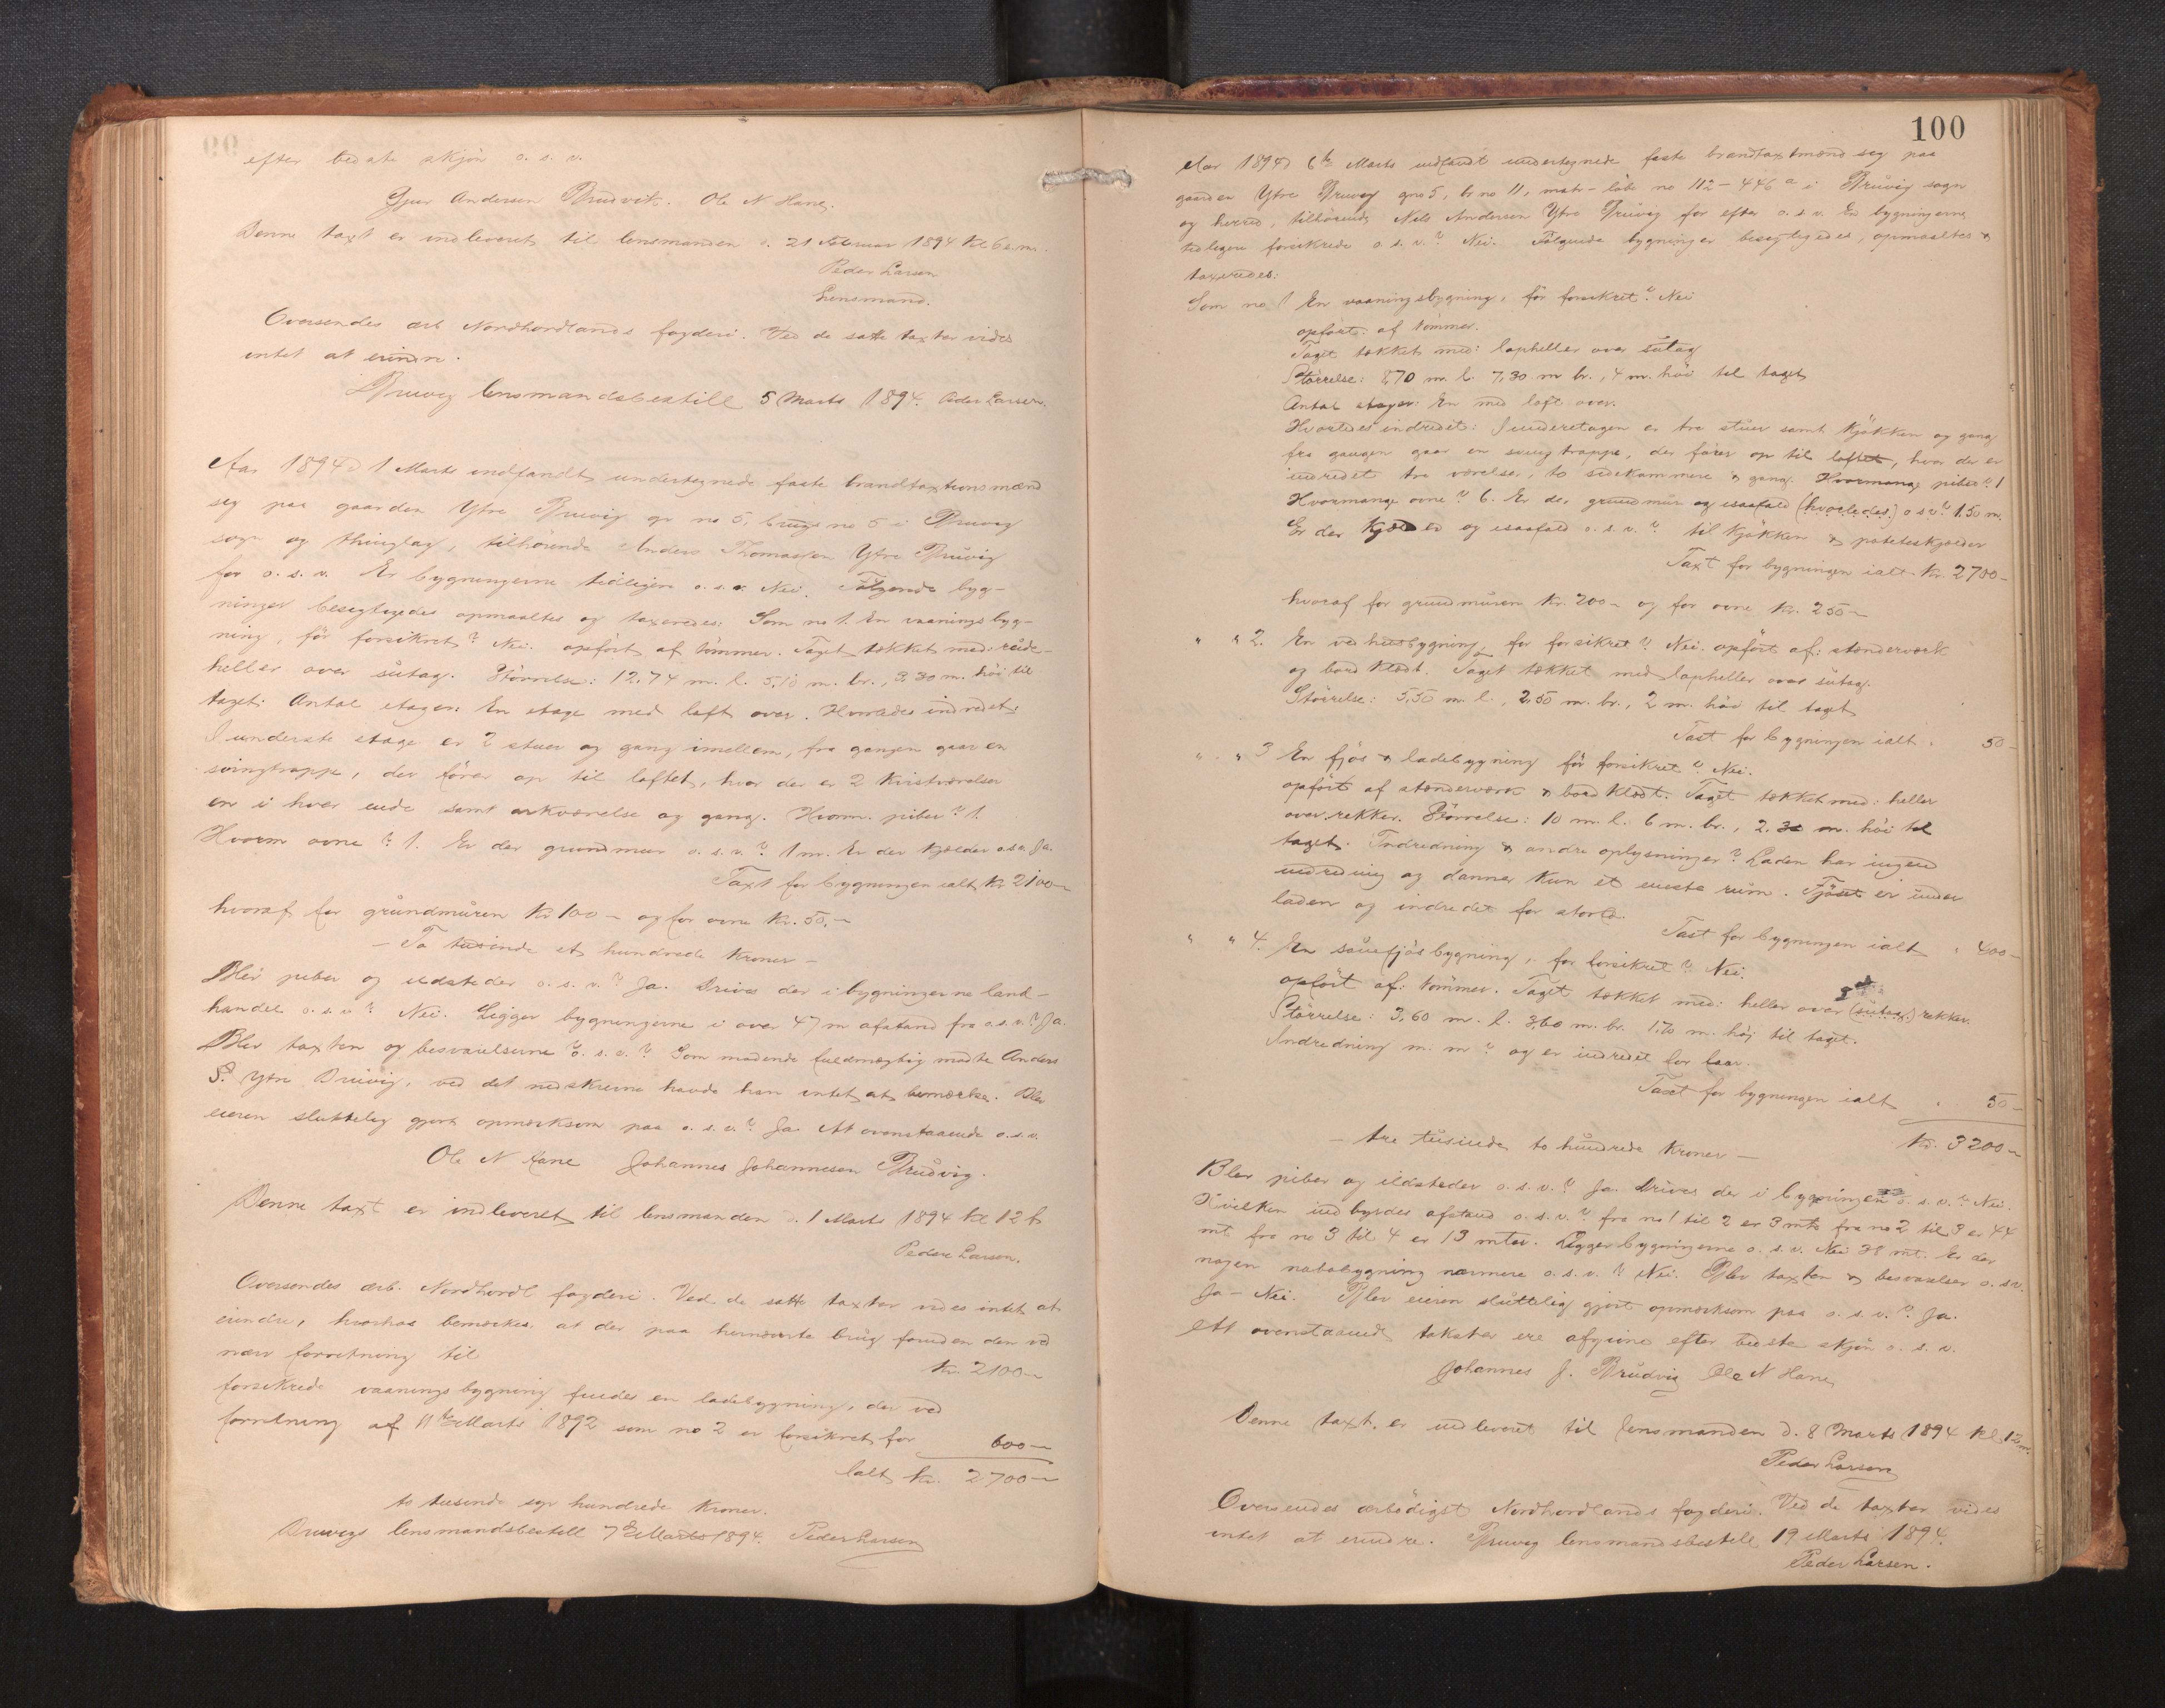 efter bedste skjön o. s. v.
Gjur Andersen Brudvik. Ole N Hane.
Denne taxt er indleveret til lensmanden d. 21 Februar 1894 kl 6 e.m.
Peder Larsen
Lensmand.
Oversendes ærb Nordhordlands fogderi. Ved de satte taxter vides
intet at erindre.
Bruvig lensmandsbestill 5 Marts 1894. Peder Larsen.
Aar 1894 d 1 Marts indfandt undertegnede faste brandtaxtionsmænd
sig paa gaarden Ytre Bruvig gr no 5, brugs no 5 i Bruvig
sogn og thinglag, tilhörende Anders Thomassen Ytre Bruvig
for o. s. v. Er bygningerne tidligere o. s. v. Nei. Fölgende byg-
ninger besigtigedes opmaaltes og taxeredes: Som no 1. En vaanings byg-
ning, för forsikret? Nei. opfört af tömmer. Taget tækket med: raide-
heller over sutag. Störrelse: 12.74 m. l. 5,10 m. br., 3,30 m. höi til
taget: Antal etager: En etage med loft over. Hvorledes indredet:
I underste etage er 2 stuer og gang imellem, fra gangen gaar en
svingtrappe, der förer op til loftet, hvor der er 2 kvistværelser
en i hver ende samt arkværelse og gang. Hvorm. piber? 1.
Hvorm ovne? 1. Er der grundmur o. s. v.? 1 m. Er der kjelder o.s.v. Ja.
Taxt for bygningen ialt kr 2100 –
hvoraf for grundmuren kr 100 – og for ovne kr. 50. –
– To tusinde et hundrede kroner –
Blev piber og ildsteder o. s. v.? Ja. Drives der i bygningerne land-
handel o. s. v.? Nei. Ligger bygningerne i over 47 m afstand fra o.s.v.? Ja.
Blev taxten og besvarelserne o. s. v.? Som mödende fuldmægtig mödte Anders
S. Ytre Bruvig, ved det nedskrevne havde han intet at bemærke. Blev
eieren sluttelig gjort opmærksom paa o. s. v.? Ja. At ovenstaaende o.s.v.
Ole N Hane Johannes Johannesen Brudvig.
Denne taxt er indleveret til lensmanden d. 1 Marts 1894 kl 12 f.
Peder Larsen.
Oversendes ærb. Nordhordl fogderi. Ved de satte taxter vides intet at
erindre, hvorhos bemærkes, at der paa hernævnte brug foruden den ved
nærv forretning til kr. 2100 –
forsikrede vaaningsbygning findes en ladebygning, der ved
forretning af 11te Marts 1892 som no 2 er forsikret for 600 –
Ialt kr. 2700 –
to tusinde syv hundrede kroner.
Bruvigs lensmandsbestill 7de Marts 1894. Peder Larsen
100
Aar 1894 d 6te Marts indfandt undertegnede faste brandtaxtmænd sig paa
gaarden Ytre Bruvig gno 5, br no 11, matr – löbe no 112 – 446 a i Bruvig sogn
og herred, tilhörende Nils Andersen Ytre Bruvig for efter o. s. v. Er bygningerne
tidligere forsikrede o. s. v.? Nei. Fölgende bygninger besigtigedes, opmaaltes &
taxeredes:
Som no 1 En vaaningsbygning, för forsikret? Nei
opfört: af tömmer.
Taget tækket med: lapheller over sutag
Störrelse: 8,70 m. l. 7,30 m br., 4 m. höi til taget
Antal etager: En med loft over.
Hvorledes indredet: I underetagen er tre stuer samt kjökken og gang
fra gangen gaar en svingtrappe, der förer op til loftet, hvor der er
indredet tre værelser, to sidekammere & gang. Hvormange piber? 1
Hvormange ovne? 6. Er der grundmur og isaafald (hvorledes) o.s.v? 1.50 m.
Er der kjælder og isaafald o. s. v.? til kjökken & poteteskjælder
Taxt for bygningen ialt kr. 2700 –
hvoraf for grundmuren kr. 200 – og for ovne kr. 250 –
" " 2. En vedhusbygning, för forsikret? Nei. opfört af: stænderværk
og bordklædt. Taget tækket med lapheller over sutag.
Störrelse: 5,50 m. l., 2,50 m. br., 2 m. höi til taget
Taxt for bygningen ialt " 50 –
" " 3 En fjös & ladebygning för forsikret? Nei.
opfört af stænderværk & bordklædt. Taget tækket med: heller
over rekker. Störrelse: 10 m. l. 6 m. br., 2.30 m. höi til
taget. Indredning & andre oplysninger? Laden har ingen
indredning og danner kun et eneste rum. Fjöset er under
laden og indredet for storfæ.
Taxt for bygningen ialt " 400 –
" " 4. En sauefjösbygning, för forsikret? Nei.
opfört af: tömmer. Taget tækket med: heller over (sutag.) rekker.
Störrelse: 3,60 m. l. 3,60 m. br. 1,70 m. höj til taget.
Indredning m. m? og er indredet for faar.
Taxt for bygningen ialt " 50 –
– tre tusinde to hundrede kroner – kr. 3200 –
Blev piber og ildsteder o. s. v.? Ja. Drives der i bygningen o. s. v.? Nei.
Hvilken indbyrdes afstand o. s. v.? fra no 1 til 2 er 3 mtr fra no 2 til 3 er 44
mt fra no 3 til 4 er 13 mter. Ligger bygningerne o. s. v. Nei 38 mt. Er der
nogen nabobygning nærmere o. s. v.? Nei. Blev taxten & besvarelser o. s.v.
Ja – Nei. Blev eieren sluttelig gjort opmærksom paa o. s. v.? Ja.
At ovenstaaende takster ere afgivne efter bedste skjön o. s. v.
Johannes J. Brudvig Ole N Hane
Denne taxt. er indleveret til lensmanden d. 8 Marts 1894 kl 12 m.
Peder Larsen
Oversendes ærbödigst Nordhordlands fogderi. Ved de taxter vides
intet at erindre. Bruvig lensmandsbestill 19 Marts 1894.
Peder Larsen.